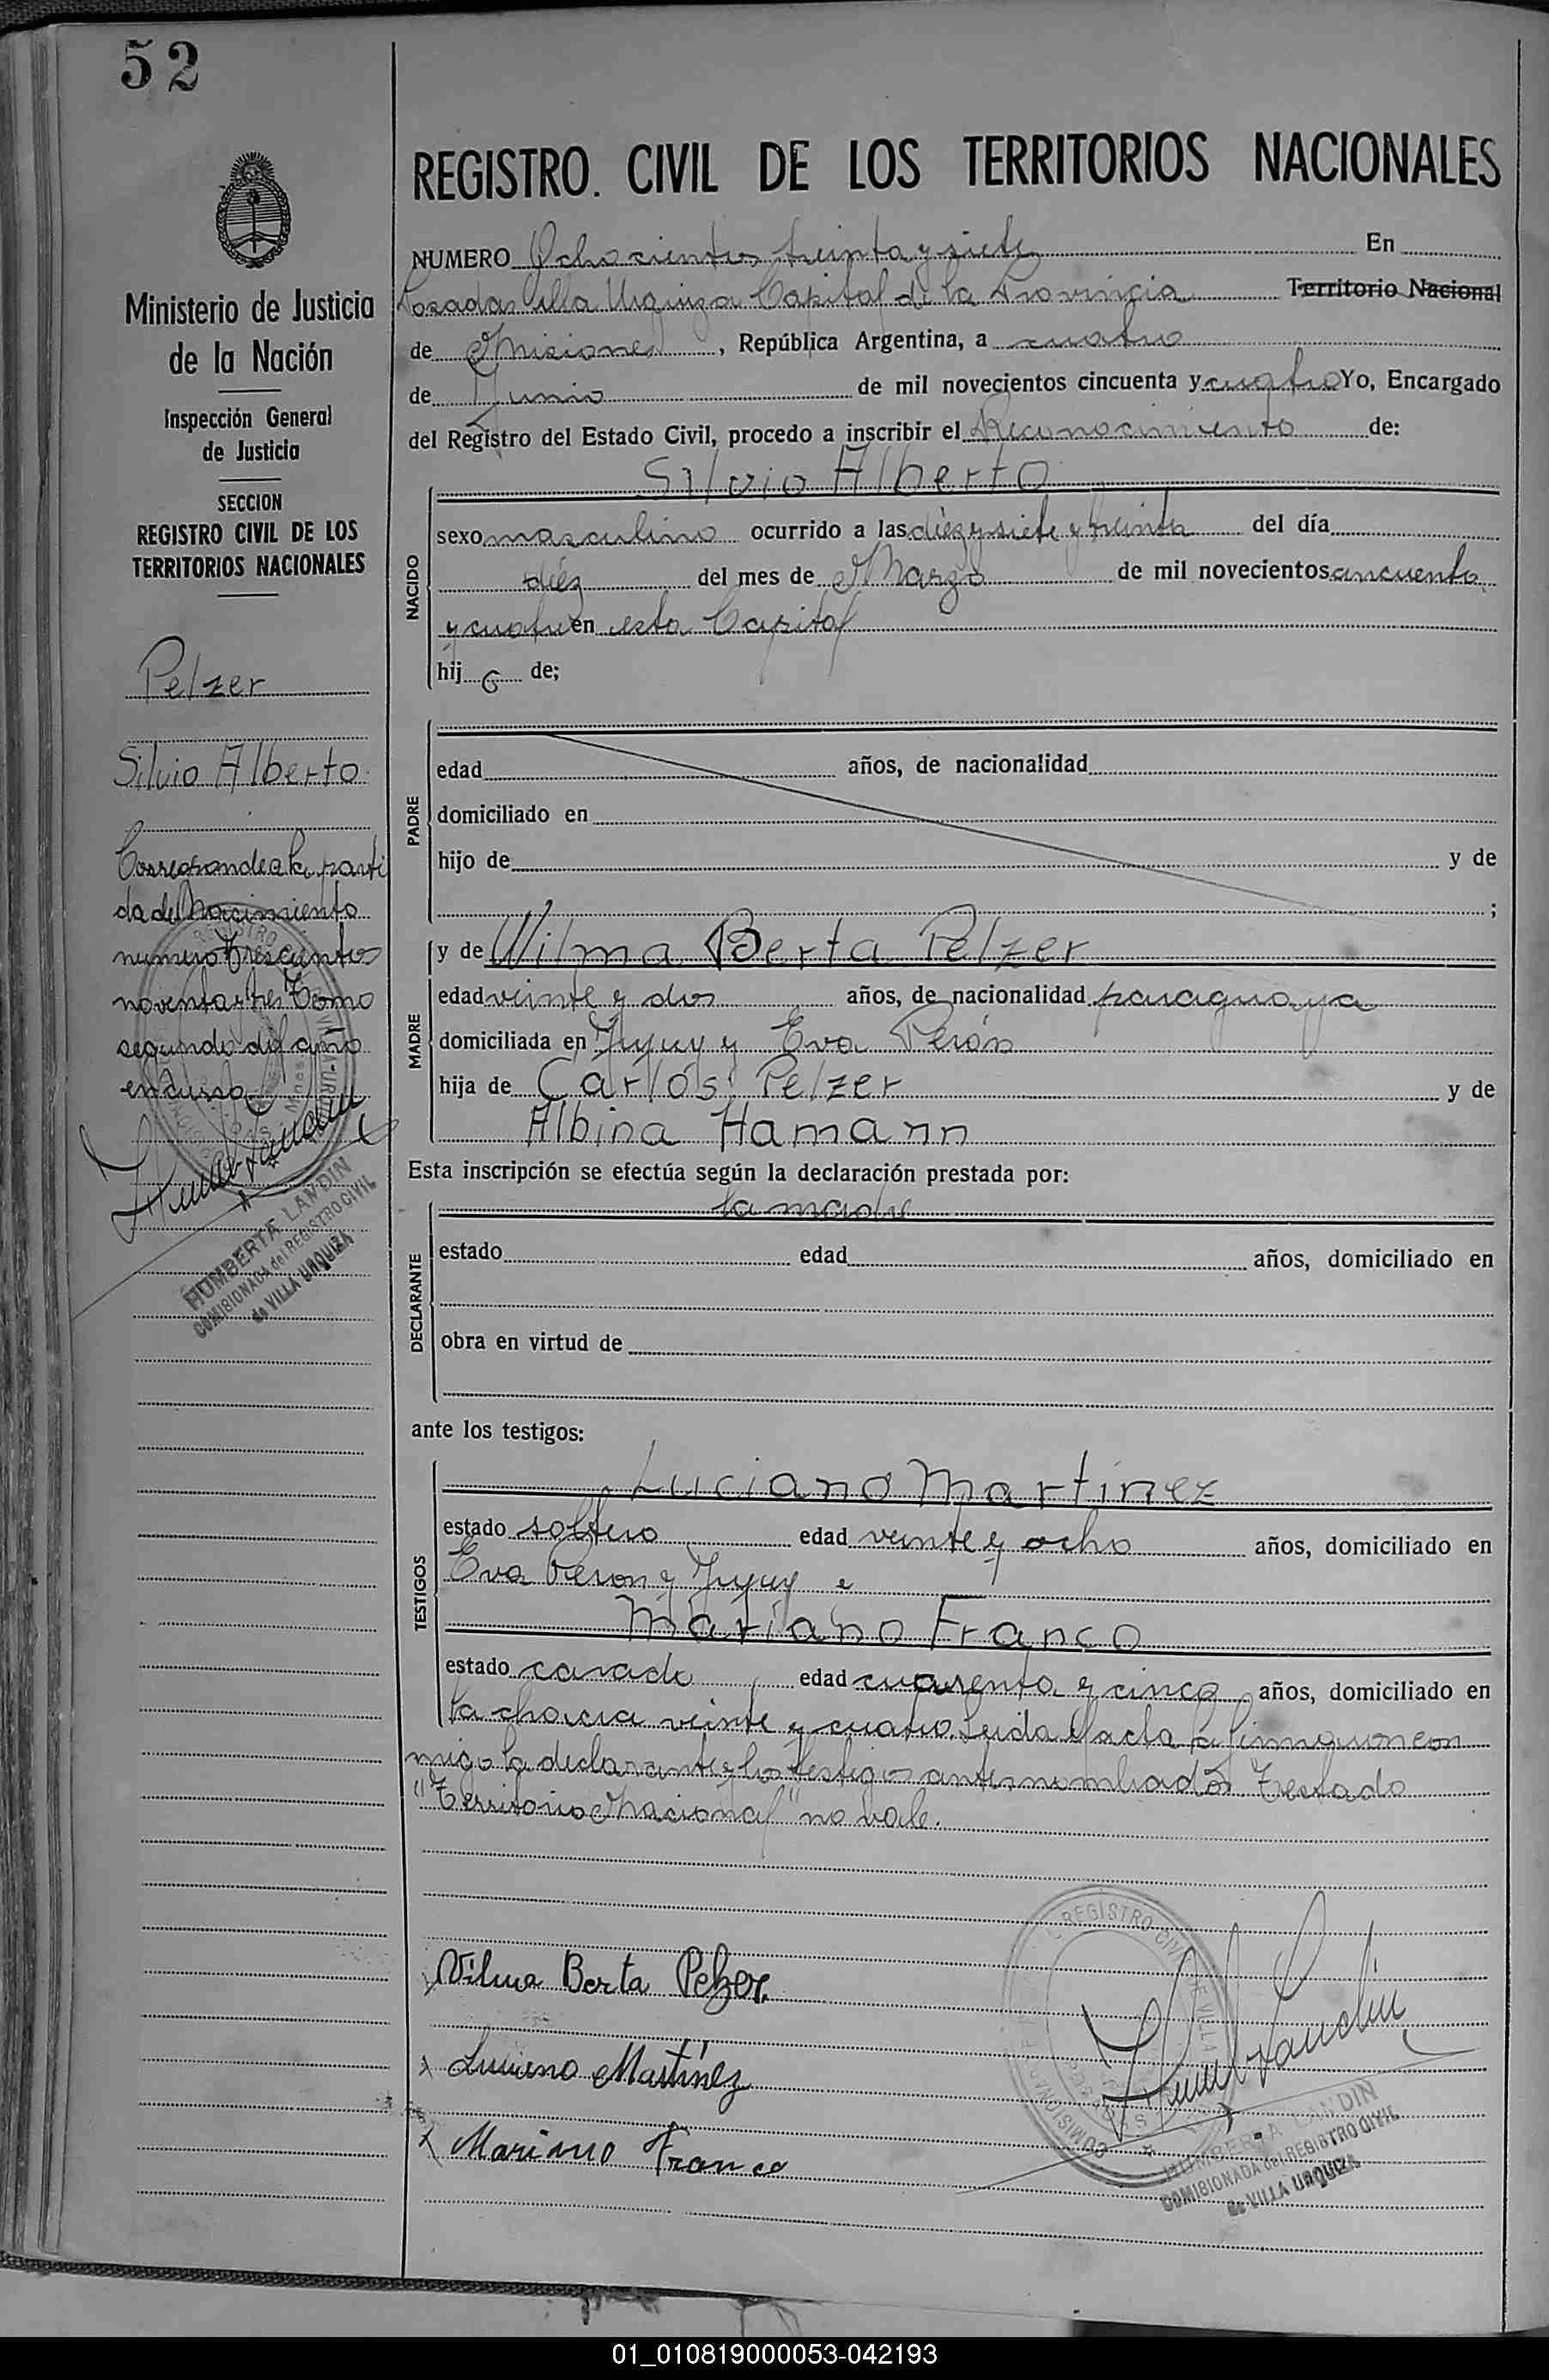 52
REGISTRO CIVIL DE LOS TERRITORIOS NACIONALES
NUMERO Ochocientos treinta y siete En
Posadas Villa Urquiza Capital de la Provincia Territorio Nacional
de Misiones, República Argentina, a cuatro
de Junio de mil novecientos cincuenta y cuatro Yo, Encargado
del Registro del Estado Civil, procedo a inscribir el Reconocimiento de:
Silvio Alberto
NACIDO
sexo masculino ocurrido a las diez y siete y treinta del día
diez del mes de Marzo de mil novecientos cincuenta
y cuatro en esta Capital
hijo de;
PADRE
edad años, de nacionalidad
domiciliado en
hijo de y de
;
MADRE
y de Wilma Berta Pelzer
edad veinte y dos años, de nacionalidad paraguaya
domiciliada en Jujuy y Eva Perón
hija de Carlos Pelzer y de
Albina Hamann
Esta inscripción se efectúa según la declaración prestada por:
la madre
DECLARANTE
estado edad años, domiciliado en
obra en virtud de
ante los testigos:
TESTIGOS
Luciano Martinez
estado soltero edad veinte y ocho años, domiciliado en
Eva Peron y Jujuy e
Mariano Franco
estado casado edad cuarenta y cinco años, domiciliado en
la chacra veinte y cuatro. Leida el acta la firmaron con
migo la declarante y los testigos antes nombrados. Testado
"Territorio Nacional" no vale.
Wilma Berta Pelzer
x Luciano Martínez
x Mariano Franco
REGISTRO CIVIL DE VILLA
HUMBERTA LANDIN
COMISIONADA del REGISTRO CIVIL
de VILLA URQUIZA
Ministerio de Justicia
de la Nación
Inspección General
de Justicia
SECCION
REGISTRO CIVIL DE LOS
TERRITORIOS NACIONALES
Pelzer
Silvio Alberto
Corresponde a la parti
da de Nacimiento
numero trescientos
noventa y tres Tomo
segundo del año
en curso
HUMBERTA LANDIN
COMISIONADA del REGISTRO CIVIL
de VILLA URQUIZA
01_010819000053-042193